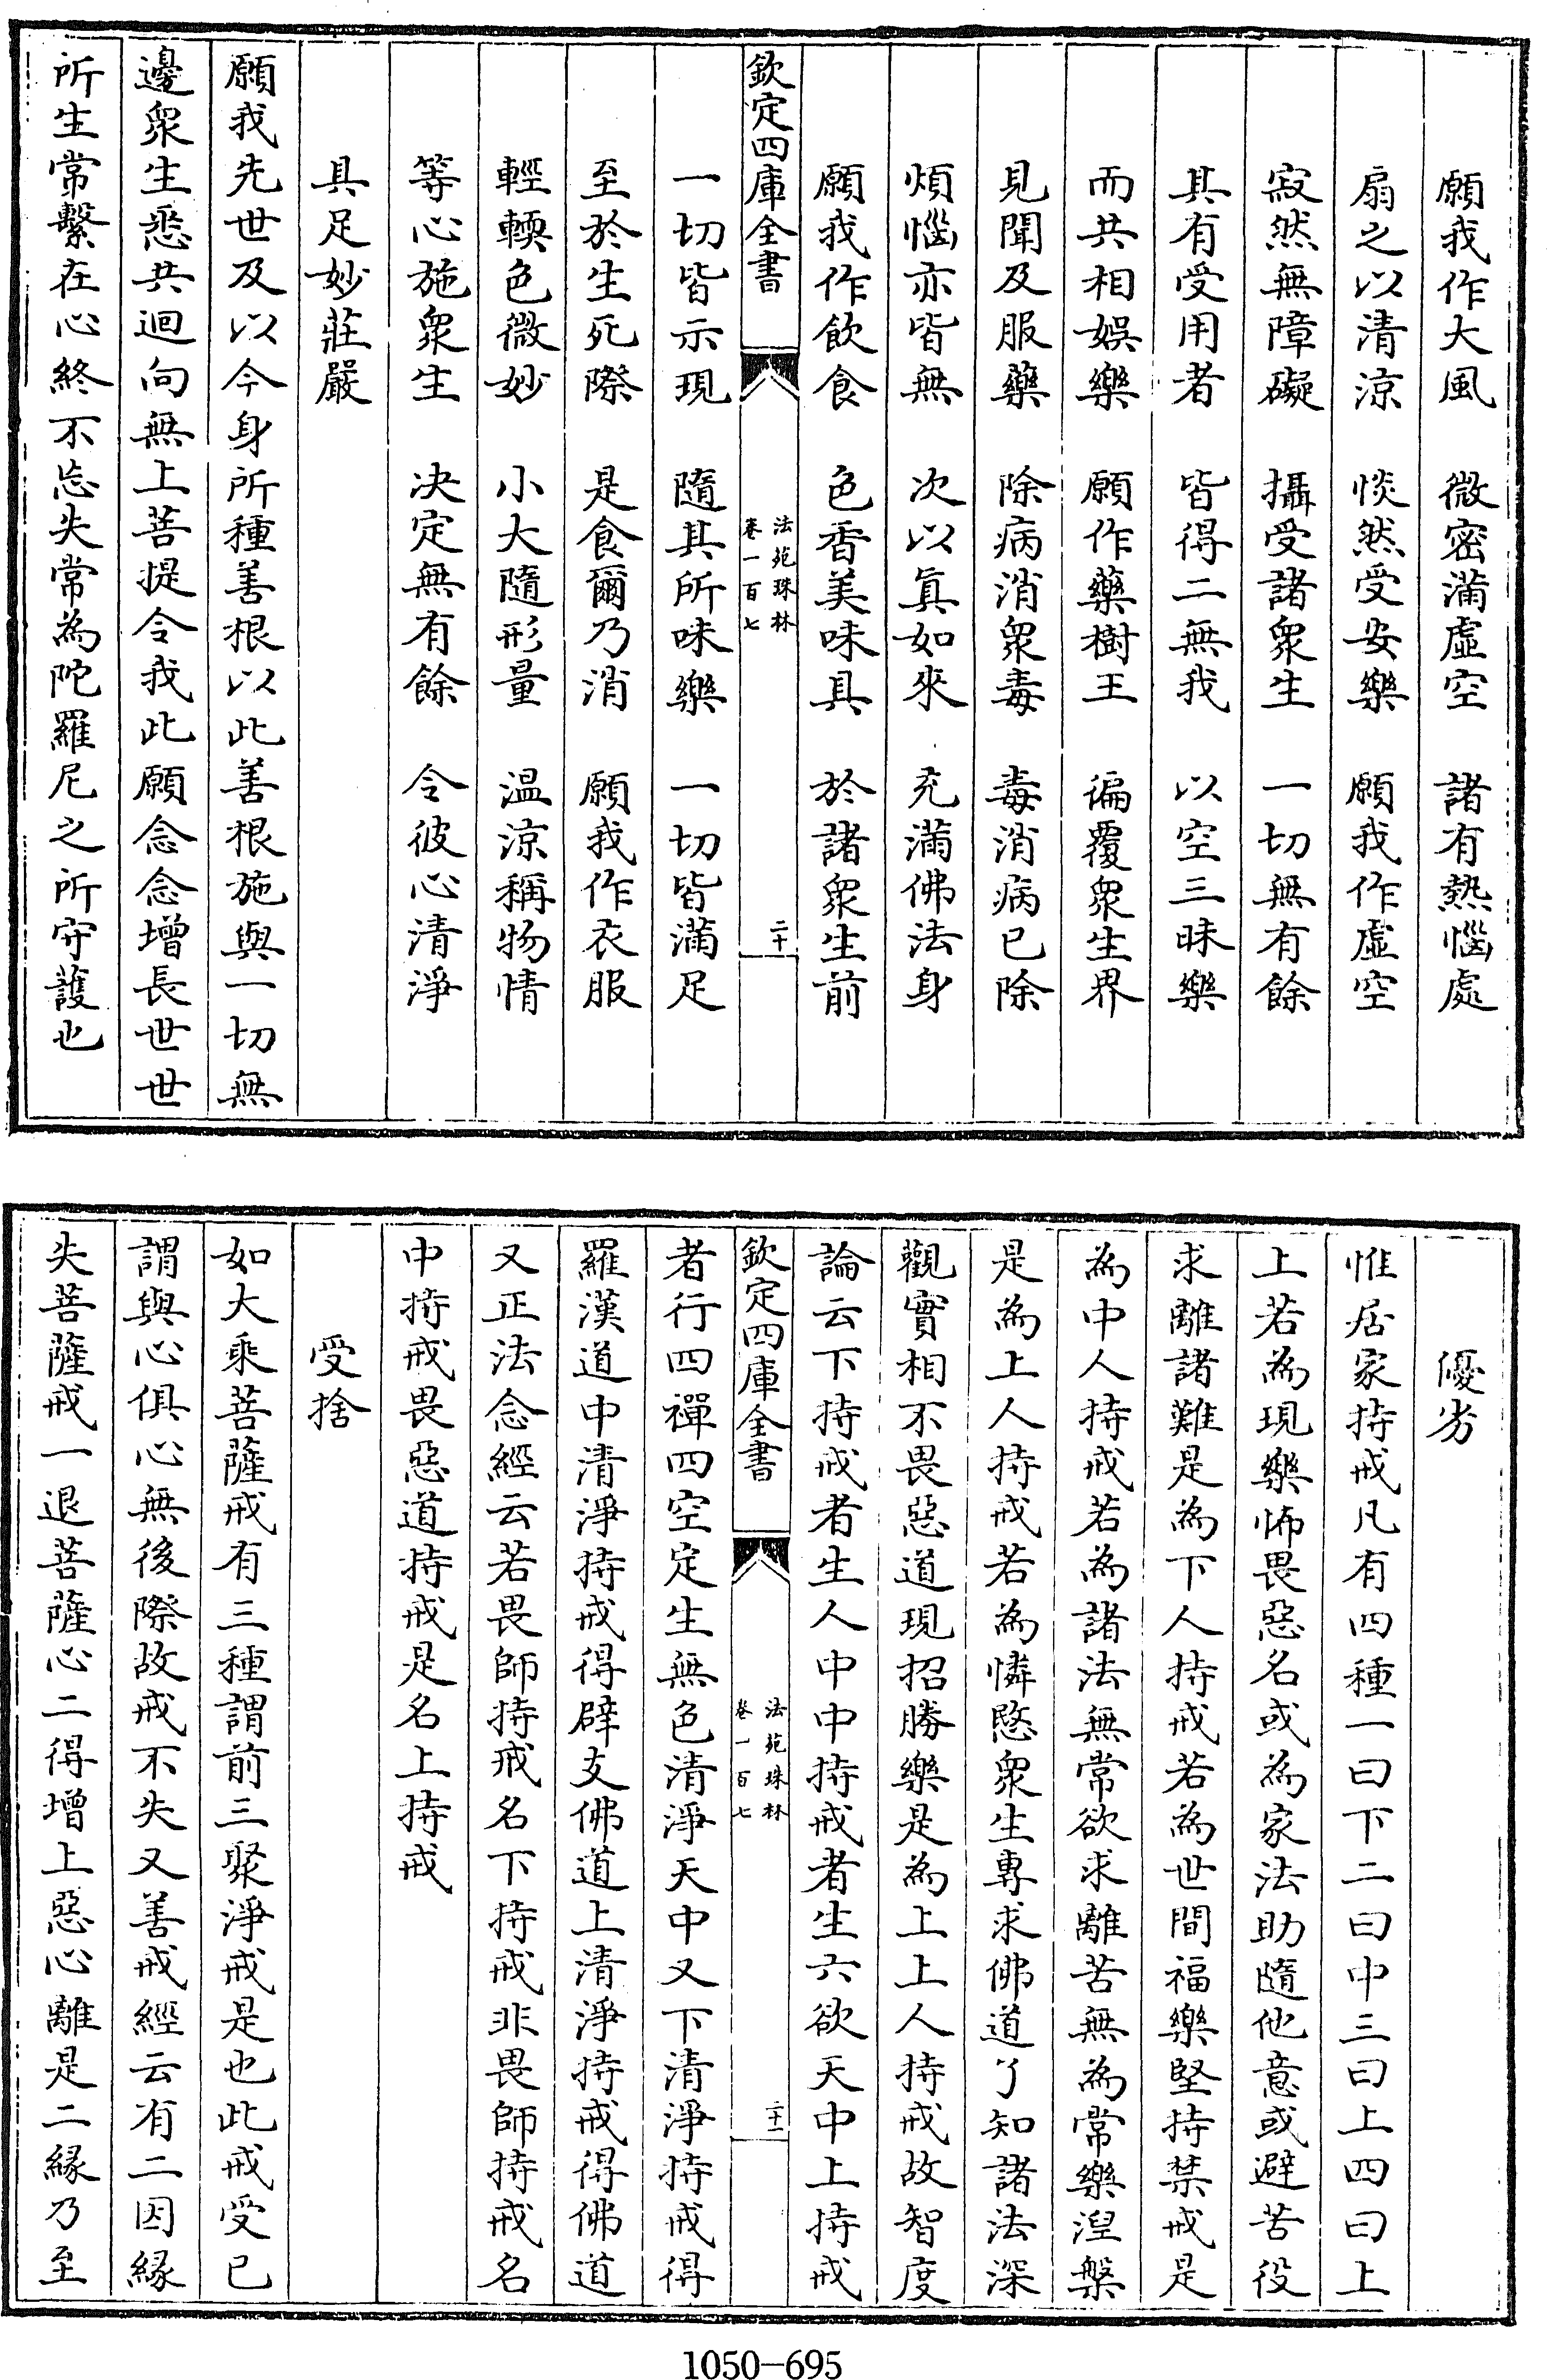 願我作大風　微密滿虛空　諸有熱惱處
扇之以清涼　惔然受安樂　願我作虛空
寂然無障礙　攝受諸衆生　一切無有餘
其有受用者　皆得二無我　以空三昧樂
而共相娛樂　願作藥樹王　徧覆衆生界
見聞及服藥　除病消衆毒　毒消病已除
煩惱亦皆無　次以眞如來　充滿佛法身
願我作飲食　色香美味具　於諸衆生前
欽定四庫全書　法苑珠林　卷一百七　二十
一切皆示現　隨其所味樂　一切皆滿足
至於生死際　是食爾乃消　願我作衣服
輕輭色微妙　小大隨形量　温涼稱物情
等心施衆生　決定無有餘　令彼心清淨
具足妙莊嚴
願我先世及以今身所種善根以此善根施與一切無
邊衆生悉共迴向無上菩提令我此願念念增長世世
所生常繫在心終不忘失常為陀羅尼之所守護也
優劣
惟居家持戒凡有四種一曰下二曰中三曰上四曰上
上若為現樂怖畏惡名或為家法助隨他意或避苦役
求離諸難是為下人持戒若為世間福樂堅持禁戒是
為中人持戒若為諸法無常欲求離苦無為常樂涅槃
是為上人持戒若為憐愍衆生專求佛道了知諸法深
觀實相不畏惡道現招勝樂是為上上人持戒故智度
論云下持戒者生人中中持戒者生六欲天中上持戒
欽定四庫全書　法苑珠林　卷一百七　二十一
者行四禪四空定生無色清淨天中又下清淨持戒得
羅漢道中清淨持戒得辟支佛道上清淨持戒得佛道
又正法念經云若畏師持戒名下持戒非畏師持戒名
中持戒畏惡道持戒是名上持戒
受捨
如大乘菩薩戒有三種謂前三聚淨戒是也此戒受已
謂與心俱心無後際故戒不失又善戒經云有二因緣
失菩薩戒一退菩薩心二得增上惡心離是二緣乃至
1050-695